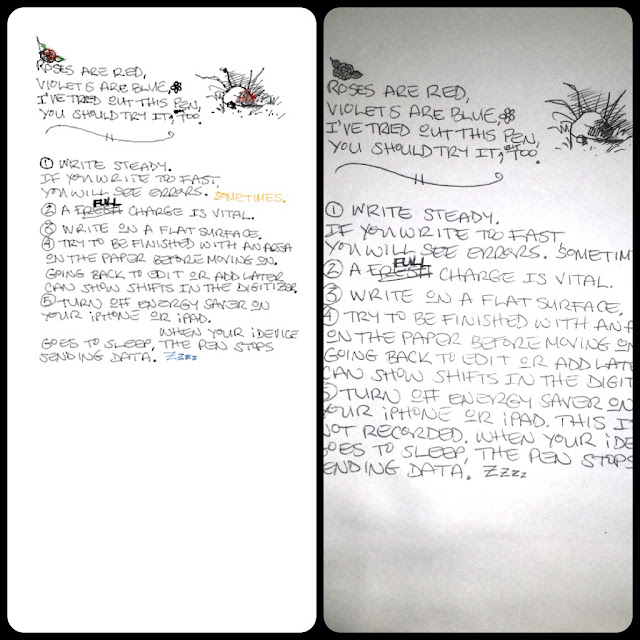 ROSES ARE RED,
VIOLETS ARE BLUE,
I'VE TRIED OUT THIS PEN,
YOU SHOULD TRY IT, TOO.
① WRITE STEADY.
IF YOU WRITE TOO FAST,
YOU WILL SEE ERRORS. SOMETIMES.
FULL
② A FRESH CHARGE IS VITAL.
③ WRITE ON A FLAT SURFACE.
④ TRY TO BE FINISHED WITH AN AREA
ON THE PAPER BEFORE MOVING ON.
GOING BACK TO EDIT OR ADD LATER
CAN SHOW SHIFTS IN THE DIGITIZER.
⑤ TURN OFF ENERGY SAVER ON
YOUR iPHONE OR iPAD.
WHEN YOUR iDEVICE
GOES TO SLEEP, THE PEN STOPS
SENDING DATA. Zzzz
ROSES ARE RED,
VIOLETS ARE BLUE,
I'VE TRIED OUT THIS PEN,
YOU SHOULD TRY IT, TOO.
① WRITE STEADY.
IF YOU WRITE TOO FAST
YOU WILL SEE ERRORS. SOMETIM
FULL
② A FRESH CHARGE IS VITAL.
③ WRITE ON A FLAT SURFACE.
④ TRY TO BE FINISHED WITH AN A
ON THE PAPER BEFORE MOVING ON
GOING BACK TO EDIT OR ADD LATE
CAN SHOW SHIFTS IN THE DIGIT
⑤ TURN OFF ENERGY SAVER ON
YOUR iPHONE OR iPAD. THIS I
NOT RECORDED. WHEN YOUR iDE
GOES TO SLEEP, THE PEN STOPS
ENDING DATA. Zzzz